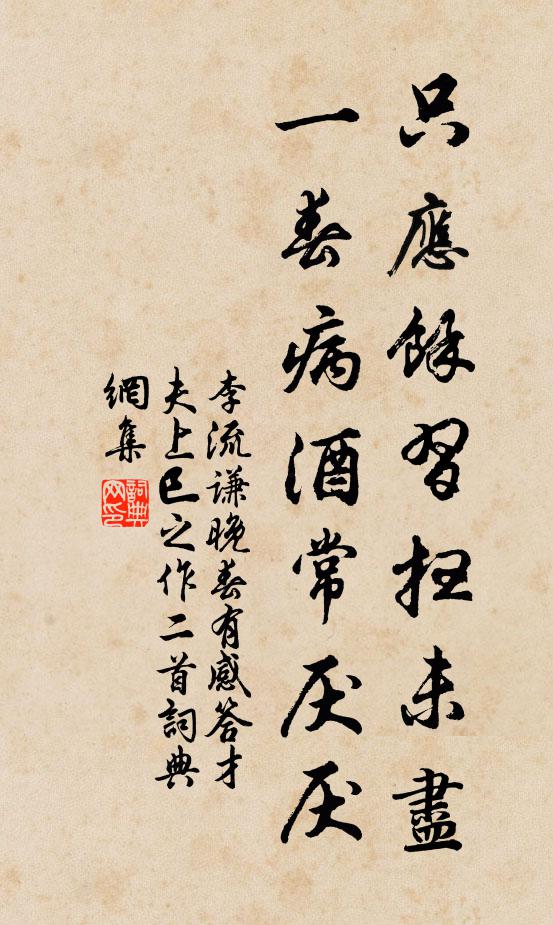 只應餘習抂未盡
一春病酒常厌厌
李流謙晚春有感答才
夫上巳之作二首詞典
網集
詞典網印